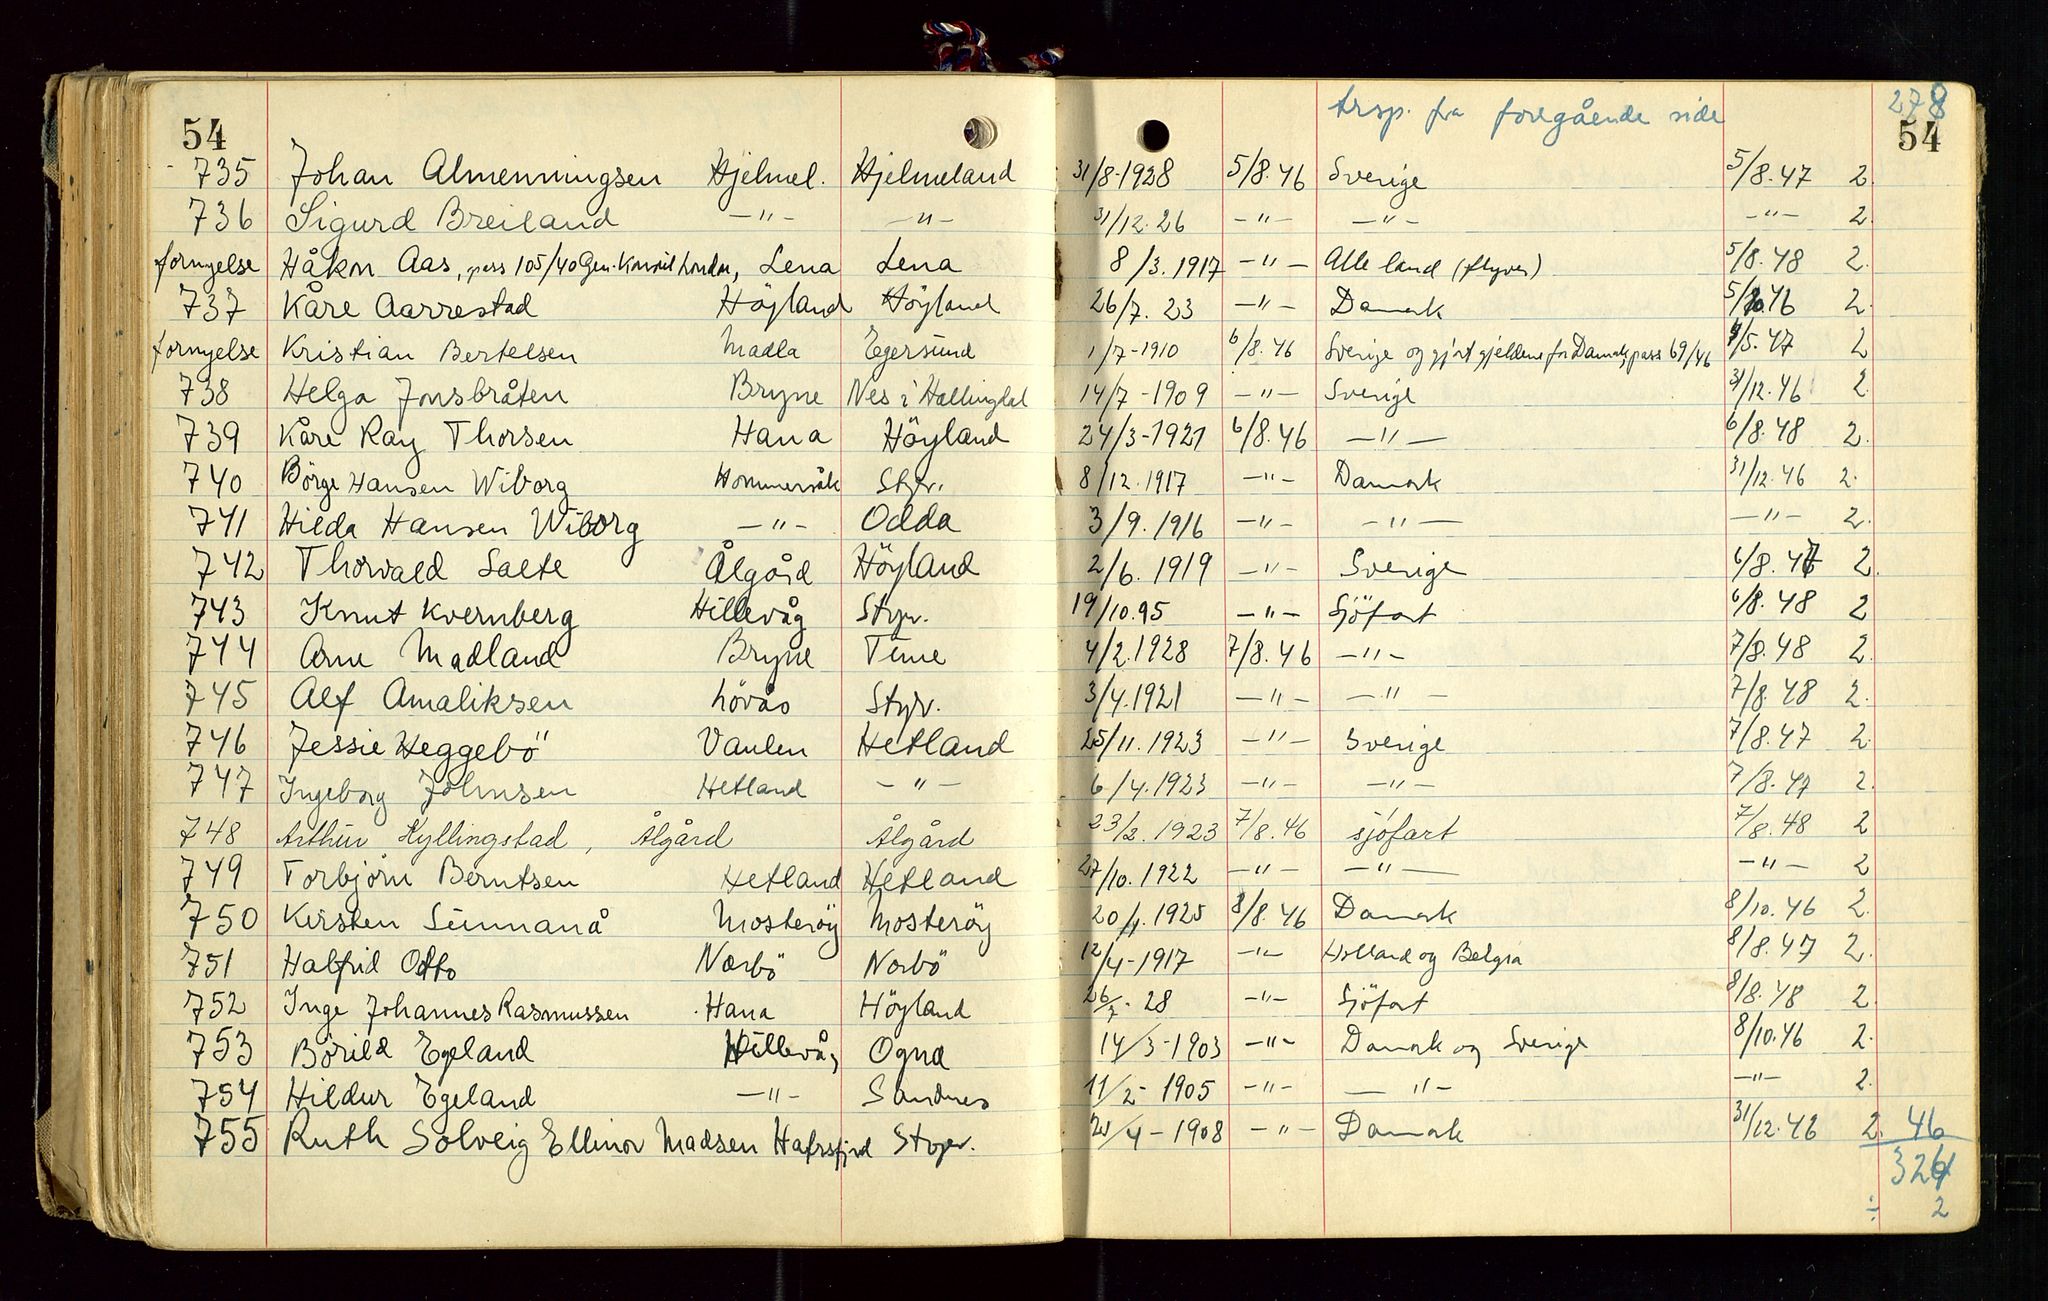 trsp. fra foregående side 278
54 54
735 Johan Almenningsen Hjelmel. Hjelmeland 31/8-1928 5/8.46 Sverige 5/8.47 2
736 Sigurd Breiland -"- -"- 31/12.26 -"- -"- -"- 2.
fornyelse Håkon Aas, pass 105/40 Gen. Konsul London, Lena Lena 8/3.1917 -"- Alle land (flyver) 5/8.48 2.
737 Kåre Aarrestad Höyland Höyland 26/7.23 -"- Danmark 5/10.46 2.
fornyelse Kristian Bertelsen Madla Egersund 1/7-1910 6/8.46 Sverige og gjort gjeldene for Danmark, pass 69/46 4/5.47 2
738 Helga Jonsbråten Bryne Nes i Hallingdal 14/7-1909 -"- Sverige 31/12.46 2
739 Kåre Ray Thorsen Hana Höyland 24/3-1921 6/8.46 -"- 6/8.48 2.
740 Börge Hansen Wiborg Hommersåk Stgr. 8/12.1917 -"- Danmark 31/12.46 2.
741 Hilda Hansen Wiborg -"- Odda 3/9.1916 -"- -"- -"- 2.
742 Thorvald Salte Ålgård Höyland 2/6.1919 -"- Sverige 6/8.47 2.
743 Knut Kvernberg Hillevåg Stgr. 19/10.95 -"- Sjöfart 6/8.48 2
744 Arne Madland Bryne Time 4/2.1928 7/8.46 -"- 7/8.48 2.
745 Alf Amaliksen Lövås Stgr. 3/4.1921 -"- -"- 7/8.48 2.
746 Jessie Heggebö Vaulen Hetland 25/11.1923 -"- Sverige 7/8.47 2.
747 Ingeborg Johnsen Hetland -"- 6/4.1923 -"- -"- 7/8.47 2.
748 Arthur Kyllingstad, Ålgård Ålgård 23/2.1923 7/8.46 sjöfart 7/8.48 2
749 Torbjörn Berntsen Hetland Hetland 27/10.1922 -"- -"- -"- 2
750 Kirsten Sunnanå Mosteröy Mosteröy 20/1.1925 8/8.46 Danmark 8/10.46 2.
751 Halfrid Otto Nærbö Nærbö 12/4-1917 -"- Holland og Belgia 8/8.47 2.
752 Inge Johannes Rasmussen Hana Höyland 26/7-28 -"- Sjöfart 8/8.48 2.
753 Börild Egeland Hillevåg Ogna 14/3-1903 -"- Danmark og Sverige 8/10.46 2.
754 Hildur Egeland -"- Sandnes 11/2-1905 -"- -"- -"- 2.
755 Ruth Solveig Ellinor Madsen Hafrsfjord Stgr. /4-1908 -"- Danmark 31/12.46 2. 46
324
÷ 2